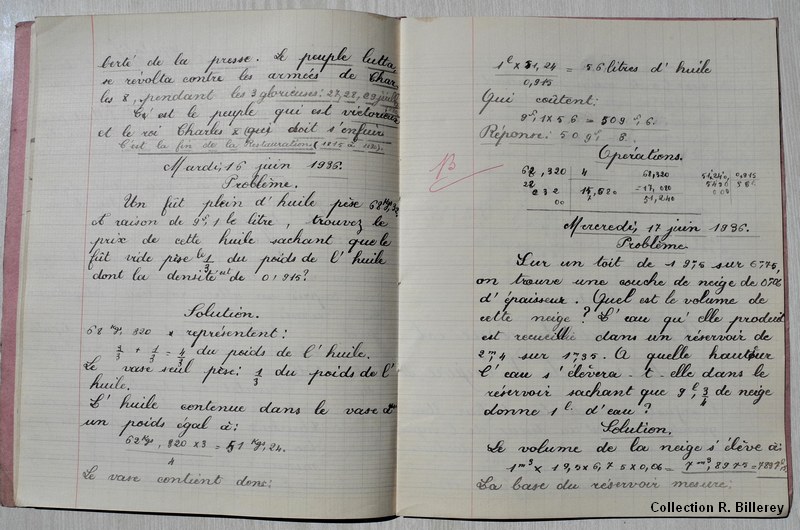 berté de la presse. Le peuple lutta
se révolta contre les armées de Char
les 8, pendant les 3 glorieuses: 27, 28, 29 juill
C'est le peuple qui est victorieux
et le roi Charles X qui doit s'enfuir
C'est la fin de la Restauration (1815 à 1830).
Mardi, 16 juin 1936.
Problème.
Un fût plein d'huile pèse 68 Kg, 32
A raison de 9f,1 le litre, trouvez le
prix de cette huile sachant que le
fût vide pèse le 1/3 du poids de l'huile
dont la densité est de 0,915?
Solution.
68 Kg, 320 représentent:
3/3 + 1/3 = 4/3 du poids de l'huile.
Le vase seul pèse: 1/3 du poids de l'
huile.
L'huile contenue dans le vase a
un poids égal à:
68 Kgs, 320 x 3 = 51 Kgs, 24.
4
Le vase contient donc:
1l x 51,24 = 56 litres d'huile
0,915
Qui coûtent:
9f,1 x 56 = 509f,6.
Réponse: 509f, 6.
Opérations.
13
68,320 4 68,320 51,240 0,915
28 -17,080 5490 56
232 51,240
00
Mercredi, 17 juin 1936.
Problème
Sur un toit de 19,5 sur 6,75,
on trouve une couche de neige de 0,06
d'épaisseur. Quel est le volume de
cette neige? L'eau qu'elle produit
est recueillie dans un réservoir de
2m,4 sur 1m,35. A quelle hauteur
l'eau s'élèvera-t-elle dans le
réservoir sachant que 9l 3/4 de neige
donne 1l d'eau?
Solution.
Le volume de la neige s'élève à:
1m3 x 19,5 x 6,75 x 0,06 = 7m3,8975 = 7897
La base du réservoir mesure:
Collection R. Billerey